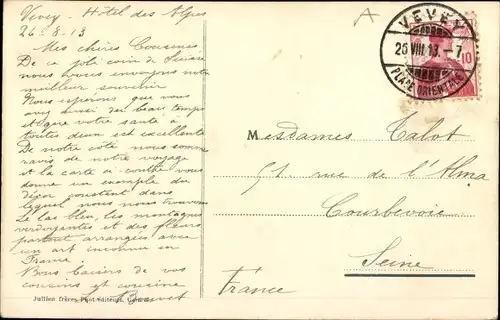 Vevey - Hôtel des Alpes
26-8-13
Mes chères Cousines
De ce joli coin de Suisse
nous vous envoyons notre
meilleur souvenir
Nous espérons que vous
avez aussi du beau temps
et que votre santé à
toutes deux est excellente
De notre côté nous sommes
ravis de notre voyage
et la carte ci-contre vous
donne un exemple du
décor constant dans
lequel nous nous trouvons
Le lac bleu, les montagnes
verdoyantes et des fleurs
partout arrangées avec
un art inconnu en
France.
Bons baisers de vos
cousins et cousine
Bouvet
Jullien frères Phot-éditeurs, Genève
A
VEVEY
26 VIII 13. - 7
PLACE ORIENTALE
10
Mesdames Talot
51. rue de l'Alma
Courbevoie
Seine
France